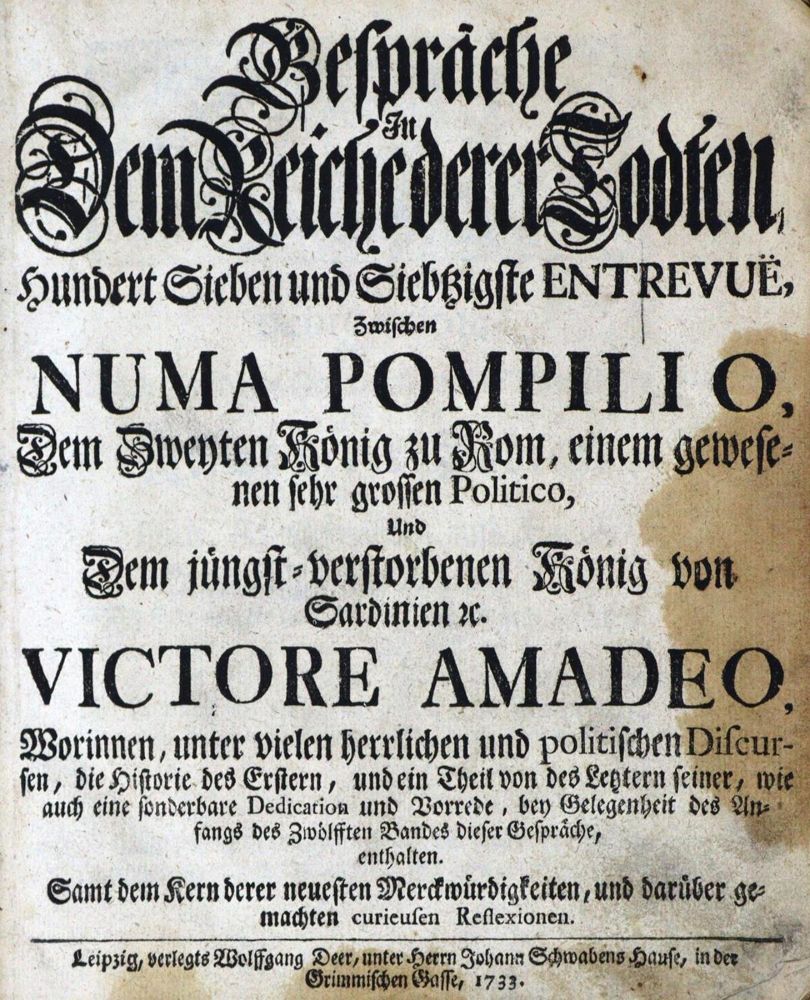 Gespräche
In
Dem Reiche derer Todten,
Hundert Sieben und Siebtzigste ENTREVUË,
Zwischen
NUMA POMPILIO,
Dem Zweyten König zu Rom, einem gewese-
nen sehr grossen Politico,
Und
Dem jüngst-verstorbenen König von
Sardinien ꝛc.
VICTORE AMADEO,
Worinnen, unter vielen herrlichen und politischen Discur-
sen, die Historie des Erstern, und ein Theil von des Letztern seiner, wie
auch eine sonderbare Dedication und Vorrede, bey Gelegenheit des An-
fangs des Zwölfften Bandes dieser Gespräche,
enthalten.
Samt dem Kern derer neuesten Merckwürdigkeiten, und darüber ge-
machten curieusen Reflexionen.
Leipzig, verlegts Wolffgang Deer, unter Herrn Johann Schwabens Hause, in der
Grimmischen Gasse, 1733.